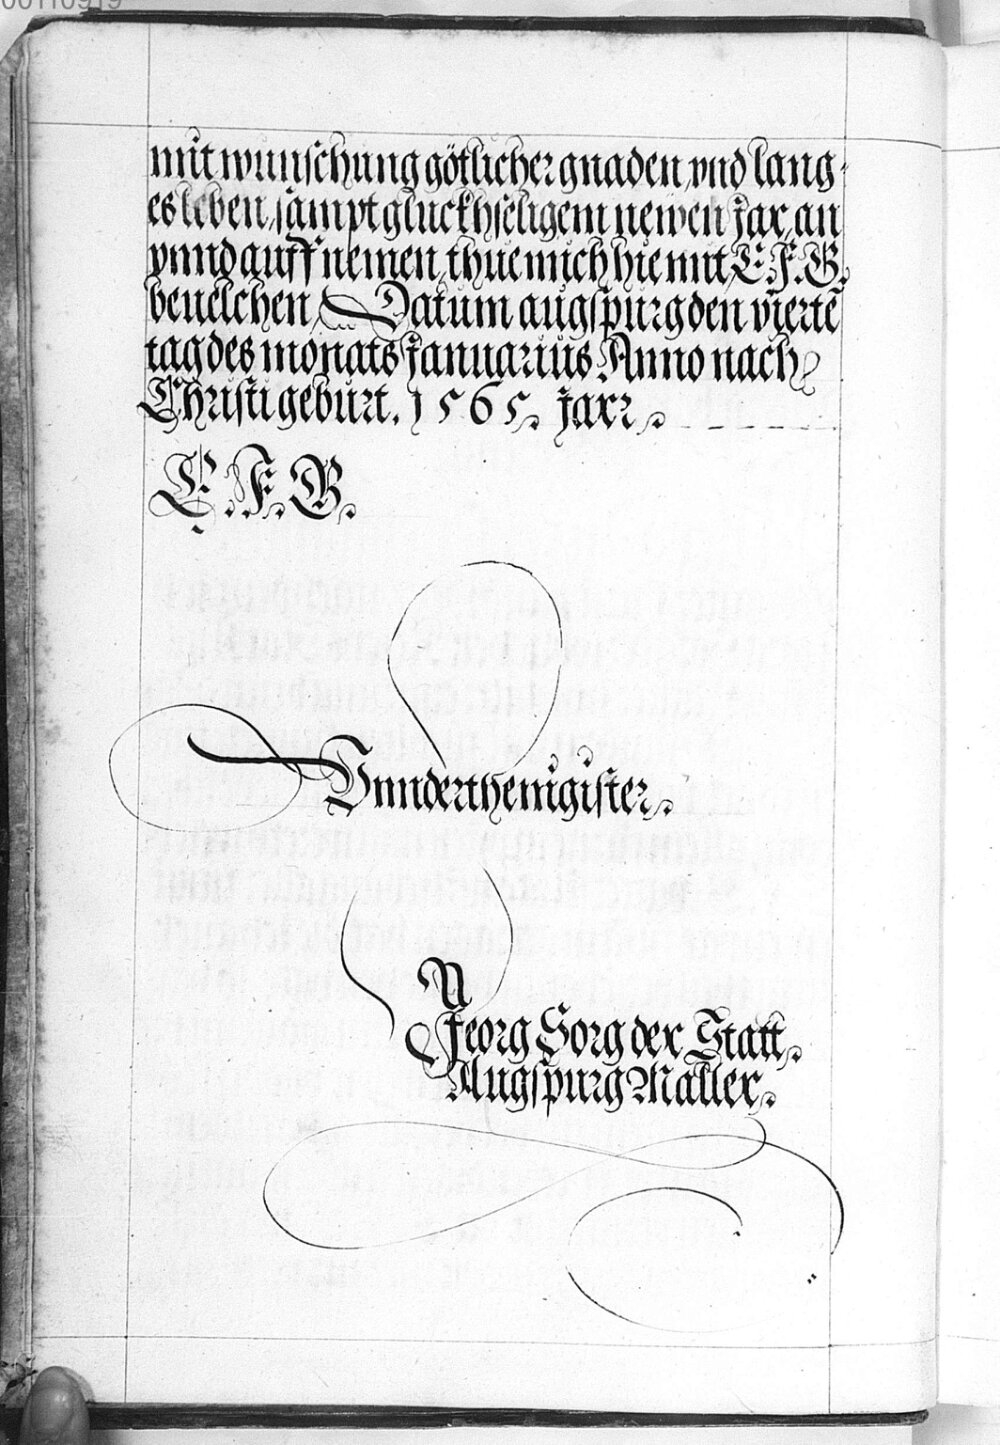 00110919
mit wunschung götlicher gnaden, vnd lang-
es leben, sampt gluckhseligem newen Jar, an
vnnd auff nemen, thue mich hiemit E. F. G.
beuelchen, Datum augspurg den vierte
tag des monats Januarius Anno nach
Christi geburt. 1565. Jarr.
E. F. G.
Vnnderthenigister.
Georg Sorg der Statt,
Augspurg Maller.